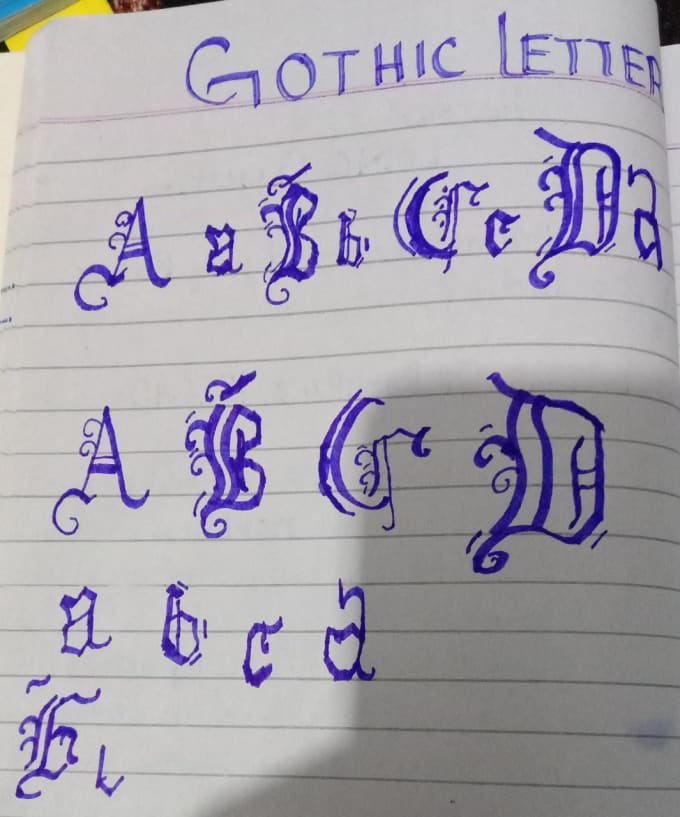 GOTHIC LETTER
A a B b C c D d
A B C D
a b c d